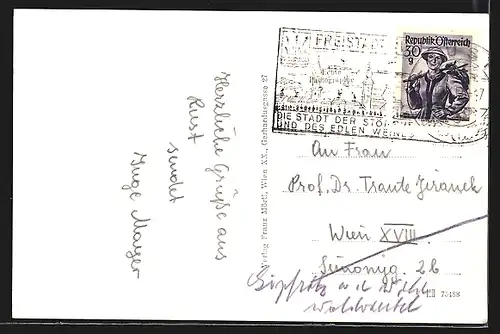 Herzliche Grüße aus
Rust
sendet
Inge Mayer
Verlag Franz Mörtl, Wien XX., Gerhardusgasse 27
FREISTADT
DIE STADT DER STÖRCHE
UND DES EDLEN WEINES
Republik Österreich
30
g
An Frau
Prof. Dr. Traute Jiranek
Wien XVIII.
Simonyg. 2b
73488